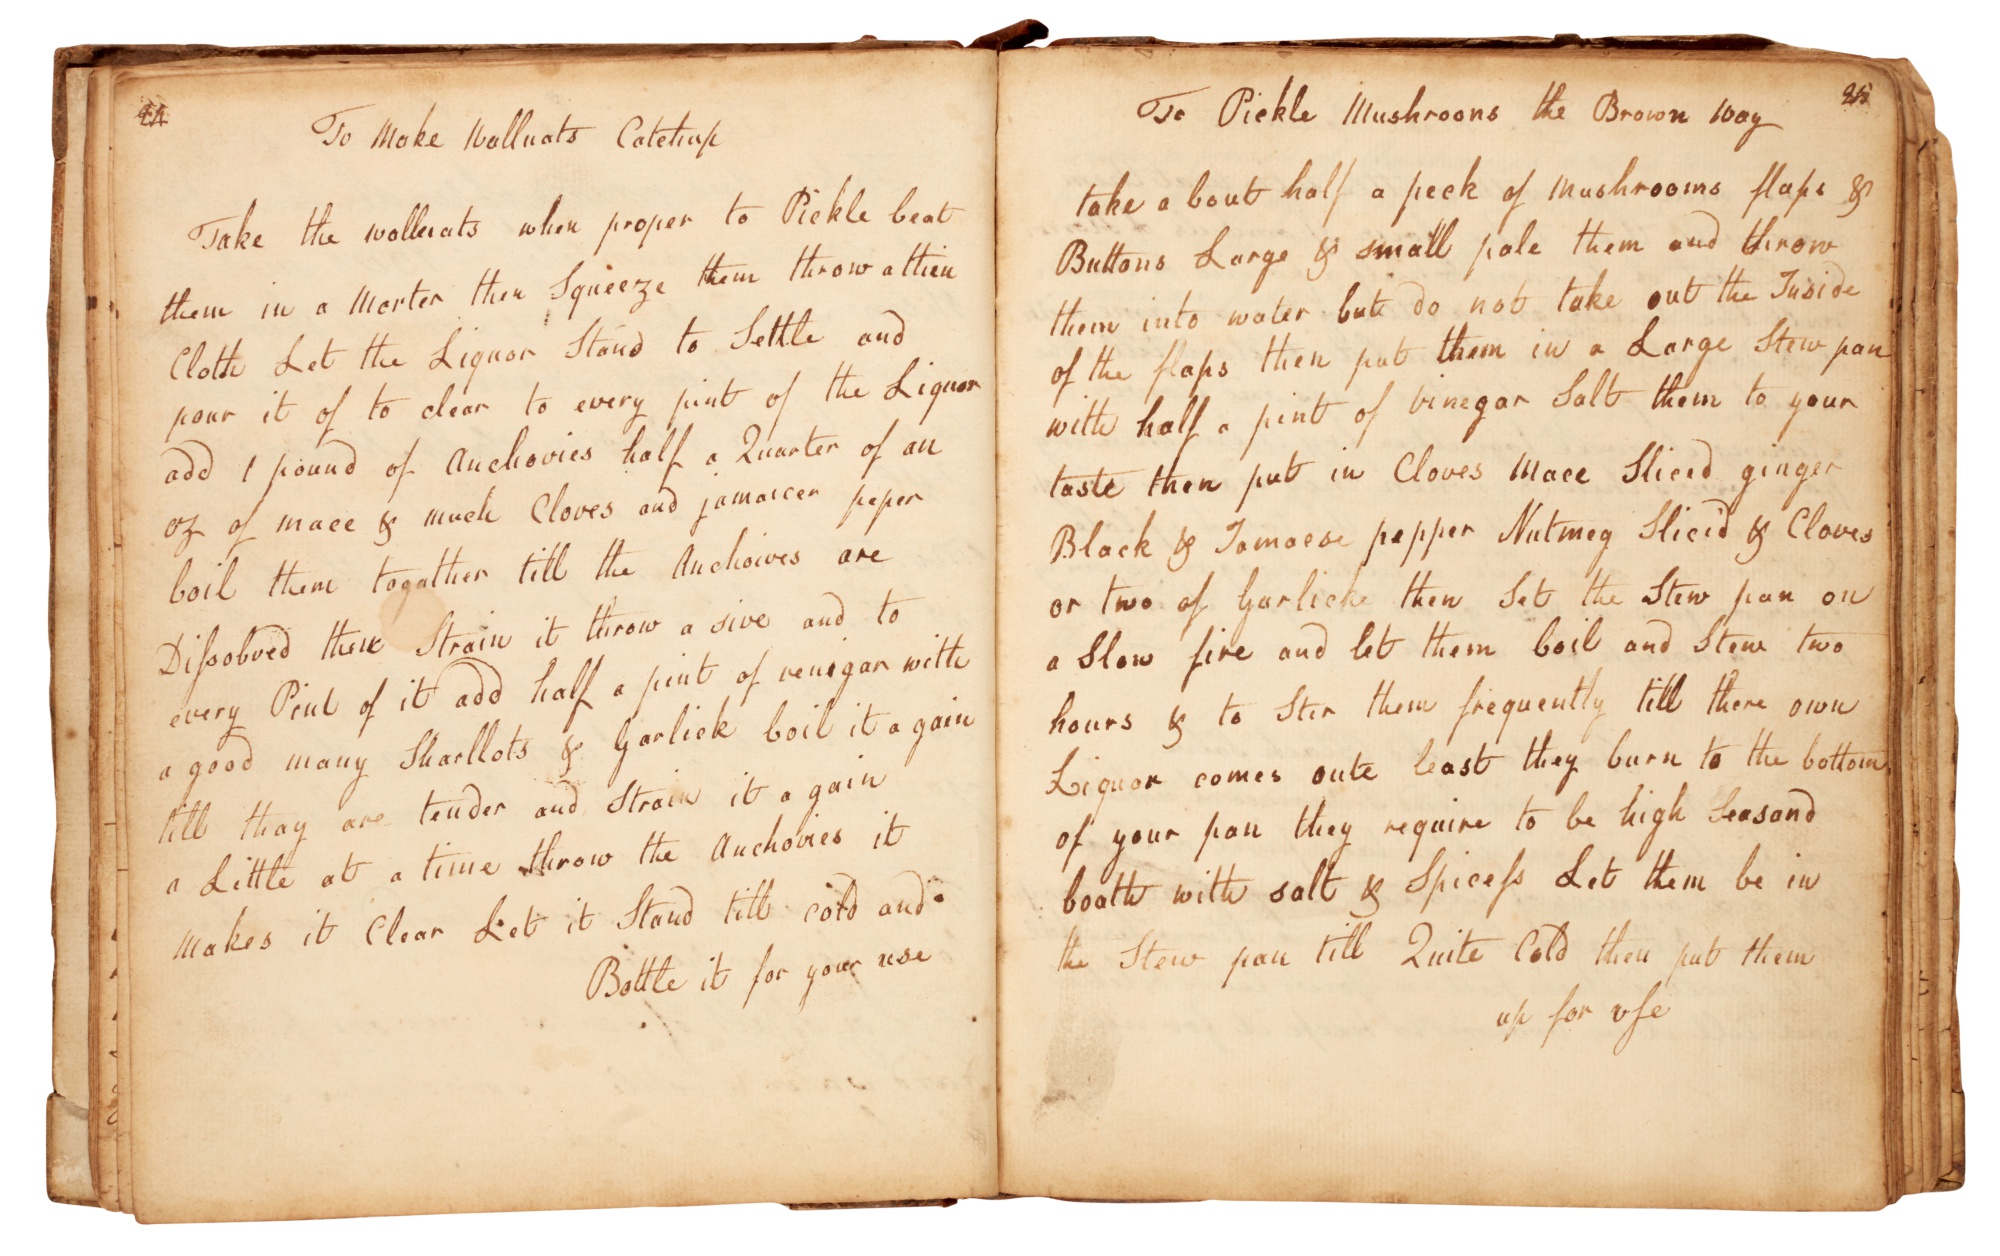 44
To Make Wallnats Catchup
Take the wallnats when proper to Pickle beat
them in a Morter then Squeeze them throw a thien
Cloth Let the Liquor Stand to Settle and
pour it of to clear to every pint of the Liquor
add 1 pound of Anchovies half a Quarter of an
oz of mace & much Cloves and jamaicer peper
boil them togather till the Anchoives are
Dissolved then Strain it throw a sive and to
every Pint of it add half a pint of venigar with
a good many Sharllots & Garlick boil it a gain
till thay are tender and Strain it a gain
a Little at a time throw the Anchovies it
Makes it Clear Let it Stand till cold and
Bottle it for your use
To Pickle Mushroons the Brown Way
take a bout half a peck of Mushrooms flaps &
Buttons Large & small pale them and throw
them into water but do not take out the Inside
of the flaps then put them in a Large Stew pan
with half a pint of vinegar Salt them to your
taste then put in Cloves Mace Sliced ginger
Black & pepper Nutmeg Slic'd & Cloves
or two of Garlicke then Set the Stew pan on
a Slow fire and let them boil and Stew two
hours & to Stir them frequently till there own
Liquor comes oute least they burn to the bottom
of your pan they require to be high Seasand
boath with salt & Spicess Let them be in
the Stew pan till Quite Cold then put them
up for use